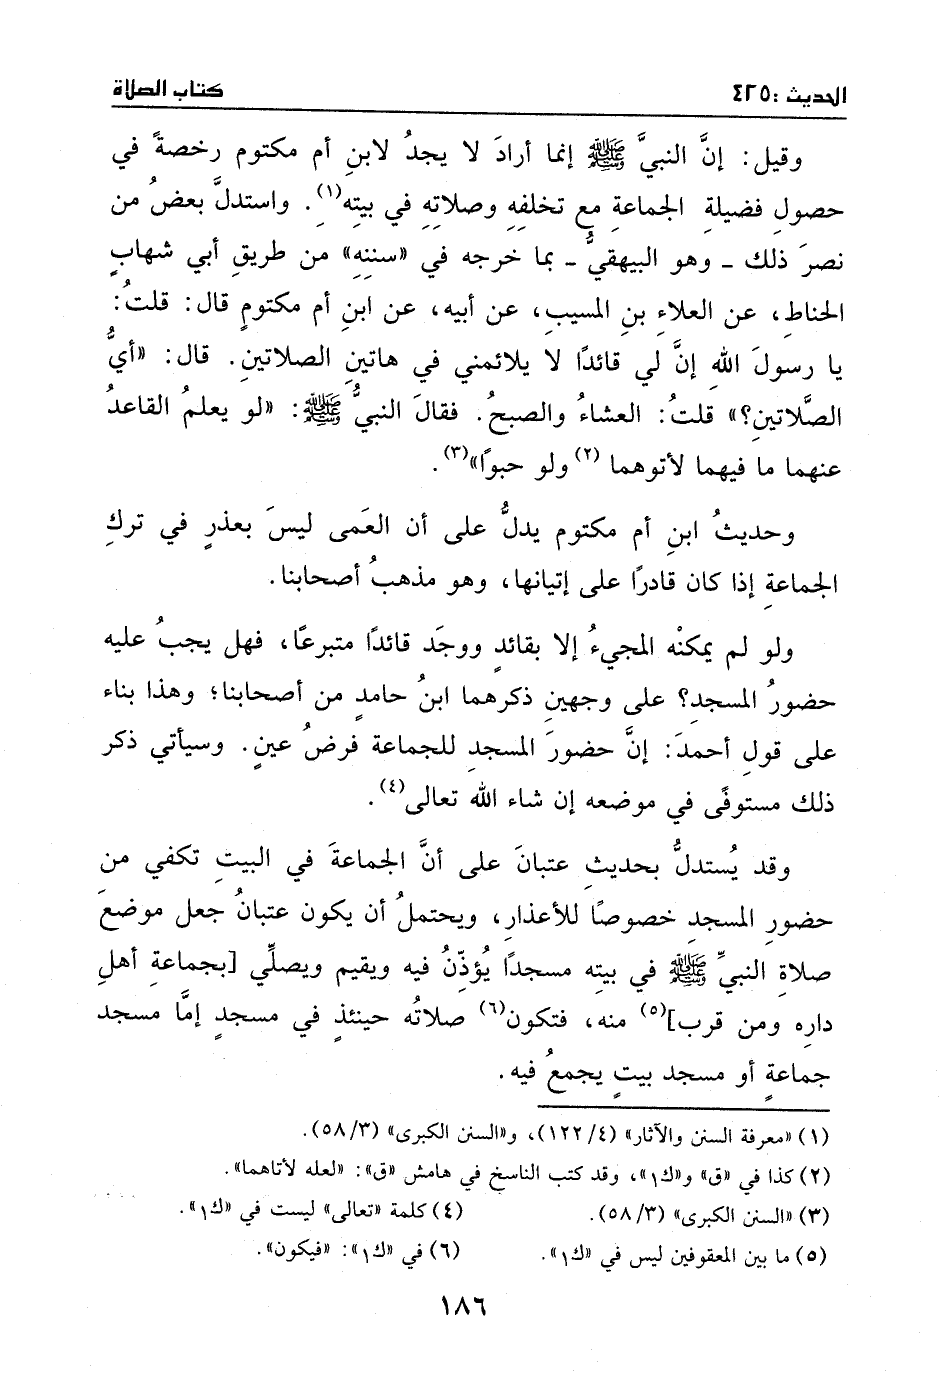 الحديث :٤٢٥ كتاب الصلاة
وقيل: إنَّ النبيَّ ﷺ إنما أرادَ لا يجدُ لابنِ أم مكتوم رخصةً في
حصولِ فضيلةِ الجماعةِ مع تخلفِهِ وصلاتِهِ في بيتِهِ(١). واستدلَّ بعضُ من
نصرَ ذلك ـ وهو البيهقيُّ ـ بما خرجه في «سننِهِ» من طريقِ أبي شهابٍ
الحناطِ، عن العلاءِ بنِ المسيبِ، عن أبيه، عن ابنِ أم مكتومٍ قال: قلتُ:
يا رسولَ اللهِ إنَّ لي قائدًا لا يلائمني في هاتينِ الصلاتينِ. قال: «أيُّ
الصَّلاتينِ؟» قلتُ: العشاءُ والصبحُ. فقالَ النبيُّ ﷺ: «لو يعلمُ القاعدُ
عنهما ما فيهما لأتوهما (٢) ولو حبوًا»(٣).
وحديثُ ابنِ أم مكتوم يدلُّ على أن العَمى ليسَ بعذرٍ في تركِ
الجماعةِ إذا كان قادرًا على إتيانها، وهو مذهبُ أصحابنا.
ولو لم يمكنْه المجيءُ إلا بقائدٍ ووجَد قائدًا متبرعًا، فهل يجبُ عليه
حضورُ المسجدِ؟ على وجهينِ ذكرهما ابنُ حامدٍ من أصحابنا؛ وهذا بناء
على قولِ أحمدَ: إنَّ حضورَ المسجدِ للجماعة فرضُ عينٍ. وسيأتي ذكر
ذلك مستوفًى في موضعه إن شاء الله تعالى(٤).
وقد يُستدلُّ بحديثِ عتبانَ على أنَّ الجماعةَ في البيتِ تكفي من
حضورِ المسجدِ خصوصًا للأعذارِ، ويحتملُ أن يكون عتبانُ جعل موضعَ
صلاةِ النبيِّ ﷺ في بيته مسجدًا يُؤذِّنُ فيه ويقيم ويصلِّي [بجماعةِ أهلِ
دارِه ومن قرب](٥) منه، فتكون(٦) صلاتُه حينئذٍ في مسجدٍ إمَّا مسجد
جماعةٍ أو مسجد بيتٍ يجمعُ فيه.
(١) «معرفة السنن والآثار» (٤/ ١٢٢)، و«السنن الكبرى» (٣/ ٥٨).
(٢) كذا في «ق» و«ك١»، وقد كتب الناسخ في هامش «ق»: «لعله لأتاهما».
(٣) «السنن الكبرى» (٣/ ٥٨). (٤) كلمة «تعالى» ليست في «ك١».
(٥) ما بين المعقوفين ليس في «ك١». (٦) في «ك١»: «فيكون».
١٨٦